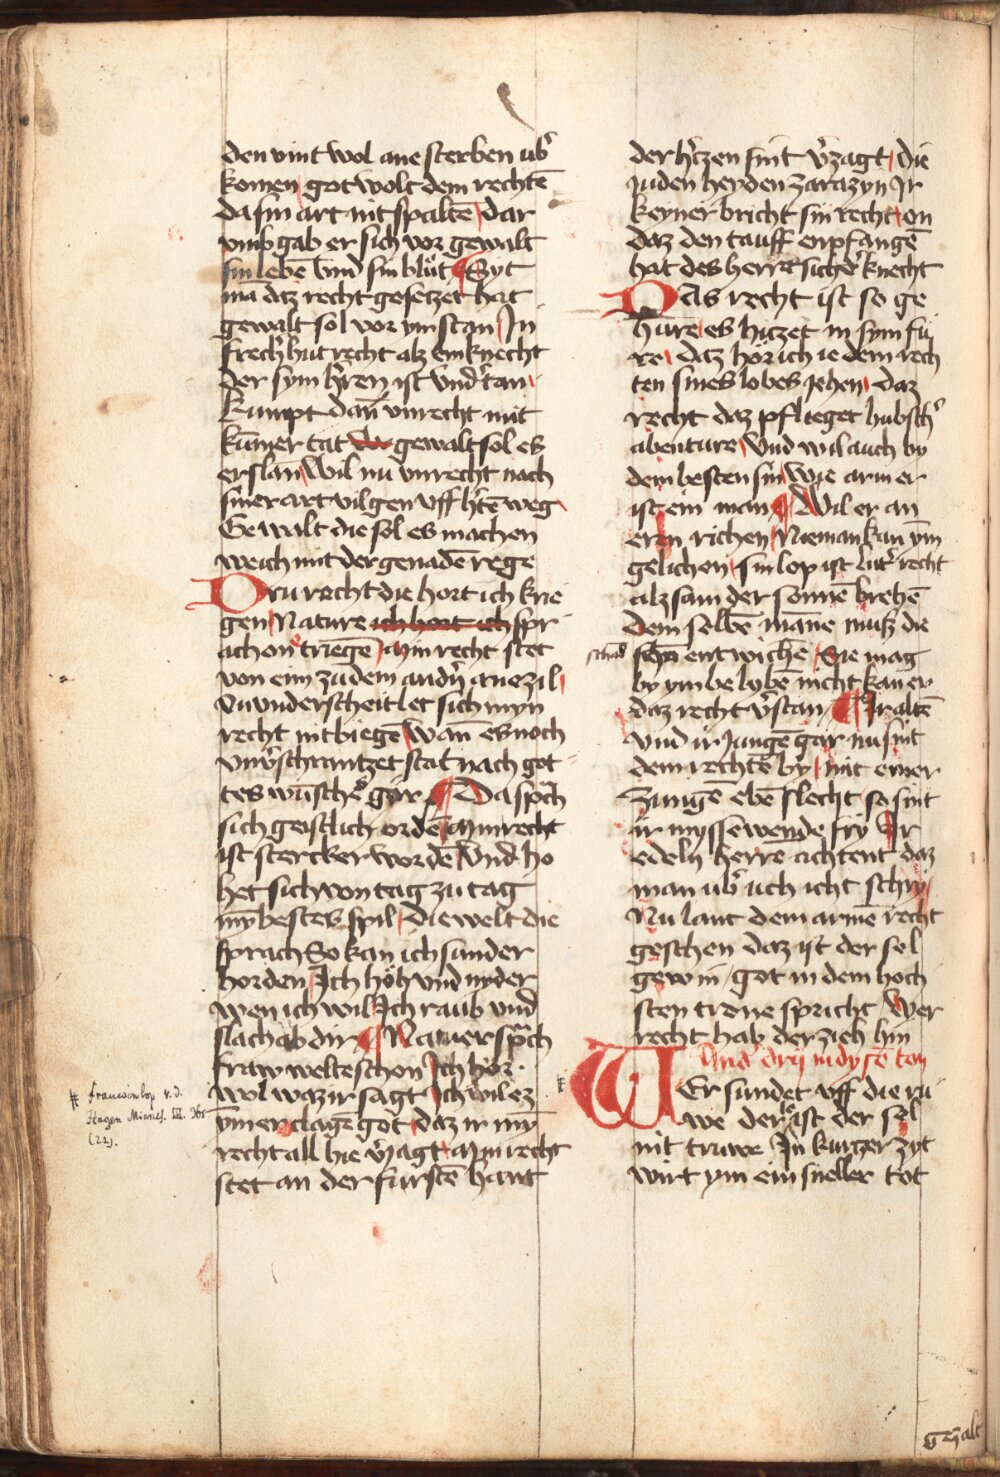 den vint wol ane sterben ub͛
komen got wolt dem rechtē
da sin art nit spaltē dar
vmb gab er sich vor gewalt
sin lebē vnd sin blůt Syt
mā daz recht gesetzet hat
gewalt sol vor ym stan In
frech͛ hut recht alz ein knecht
der sym h͛ren ist vnd͛tan
kumpt dan̄ vnrecht mit
kūmer tat gewalt sol es
erslan Wil nu vnrecht nach
siner art vilgen vff h͛tē weg
Gewalt die sol es machen
weich mit der genadē rege
Dru recht die hort ich krie
gen Nature ich hort ich spr
ach on triegē Myn recht stet
von eim zu dem and͛n ane zil
Vnunderscheitlet sich myn
recht nit biegē wan̄ es noch
vnv͛schrantzet stat nach got
tes wūsche gar Da sp͛ch
sich geistlich ordē Myn recht
ist stercker wordē vnd ho
het sich von tag zu tag
mȳ bestes spil die welt die
sprach So kan ich sunder
horden Ich hoh vnd nyder
wen ich wil Ich raub vnd
slach ab dir Natuer sp͛ch
fraw welte schon Ich hor
wol waz ir sagt Ich wil ez
ȳmer clagē got daz ir mȳ
recht all hie v͛iagt Myn recht
stet an der furstē hant
der h͛tzen sint v͛zagt die
Juden heyden zarazyn Ir
keyner bricht sin recht on
daz den tauff enpfangē
hat des herrē sich d͛ knecht
DAs recht ist so ge
hure es hitzet in sym fu
re daz hor ich ie dem rech
ten sines lobes Jehen daz
recht daz pflieget hubsch͛
abenture vnd wil auch by
dem besten sin Wie arm er
ist ein man Wil er an
eren richen Nieman kan ym
gelichen sin lop ist lut͛ recht
alz sam der sonnē brehē
Dem selbē manne muß die
schan entwichē Sie mag
by ym belybē nicht kan er
daz recht v͛stan Ir altē
vnd ir Jungē gar nu sint
dem rechtē by mit einer
zungē ebē slecht so sint
ir myssewende fry Ir
edeln herrē achtent daz
man ub͛ uch icht schry
Nu lant dem armē recht
geschen daz ist der sel
gewin got in dem hoch
sten trone spricht Wer
recht hab der zieh hin
And͛ drỹ in dysē ton
WEr sundet vff die ru
we der ist der sel
nit truwe In kurtzer zyt
wirt ym ein sneller tot
schad
Frauwenlop v. d.
Hagen Minnes. III. 365
(22).